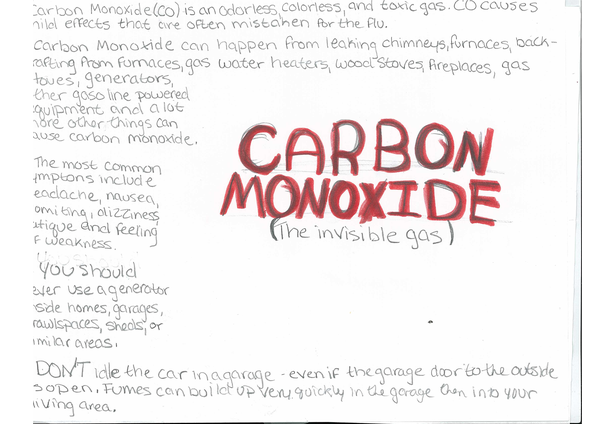 Carbon Monoxide(CO) is an odorless, colorless, and toxic gas. CO causes
mild effects that are often mistaken for the flu.
Carbon Monoxide can happen from leaking chimneys, furnaces, back-
rafting from furnaces, gas water heaters, wood stoves, fireplaces, gas
toves, generators,
ther gasoline powered
quipment and a lot
more other things can
ause carbon monoxide.
CARBON
MONOXIDE
(The invisible gas)
The most common
ymptons include
eadache, nausea,
omiting, dizziness
atigue and feeling
f weakness.
You should
ever use a generator
side homes, garages,
rawlspaces, sheds, or
imilar areas.
DON'T idle the car in a garage - even if the garage door to the outside
s open. Fumes can build up very quickly in the garage then into your
living area.